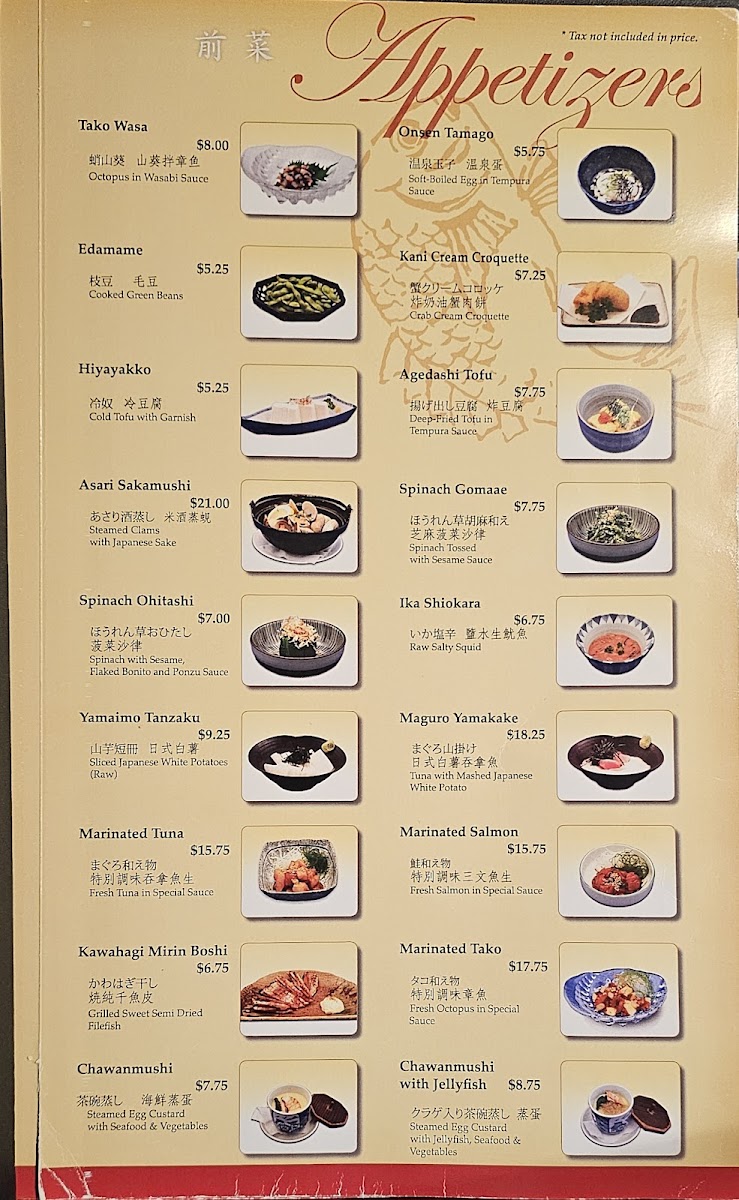 前菜
Appetizers
* Tax not included in price.
Tako Wasa
$8.00
蛸山葵 山葵拌章鱼
Octopus in Wasabi Sauce
Edamame
$5.25
枝豆 毛豆
Cooked Green Beans
Hiyayakko
$5.25
冷奴 冷豆腐
Cold Tofu with Garnish
Asari Sakamushi
$21.00
あさり酒蒸し 米酒蒸蜆
Steamed Clams
with Japanese Sake
Spinach Ohitashi
$7.00
ほうれん草おひたし
菠菜沙律
Spinach with Sesame,
Flaked Bonito and Ponzu Sauce
Yamaimo Tanzaku
$9.25
山芋短冊 日式白薯
Sliced Japanese White Potatoes
(Raw)
Marinated Tuna
$15.75
まぐろ和え物
特別調味吞拿魚生
Fresh Tuna in Special Sauce
Kawahagi Mirin Boshi
$6.75
かわはぎ干し
焼純千魚皮
Grilled Sweet Semi Dried
Filefish
Chawanmushi
$7.75
茶碗蒸し 海鮮蒸蛋
Steamed Egg Custard
with Seafood & Vegetables
Onsen Tamago
$5.75
温泉玉子 溫泉蛋
Soft-Boiled Egg in Tempura
Sauce
Kani Cream Croquette
$7.25
蟹クリームコロッケ
炸奶油蟹肉餅
Crab Cream Croquette
Agedashi Tofu
$7.75
揚げ出し豆腐 炸豆腐
Deep-Fried Tofu in
Tempura Sauce
Spinach Gomaae
$7.75
ほうれん草胡麻和え
芝麻菠菜沙律
Spinach Tossed
with Sesame Sauce
Ika Shiokara
$6.75
いか塩辛 鹽水生魷魚
Raw Salty Squid
Maguro Yamakake
$18.25
まぐろ山掛け
日式白薯吞拿魚
Tuna with Mashed Japanese
White Potato
Marinated Salmon
$15.75
鮭和え物
特別調味三文魚生
Fresh Salmon in Special Sauce
Marinated Tako
$17.75
タコ和え物
特別調味章魚
Fresh Octopus in Special
Sauce
Chawanmushi
with Jellyfish $8.75
クラゲ入り茶碗蒸し 蒸蛋
Steamed Egg Custard
with Jellyfish, Seafood &
Vegetables